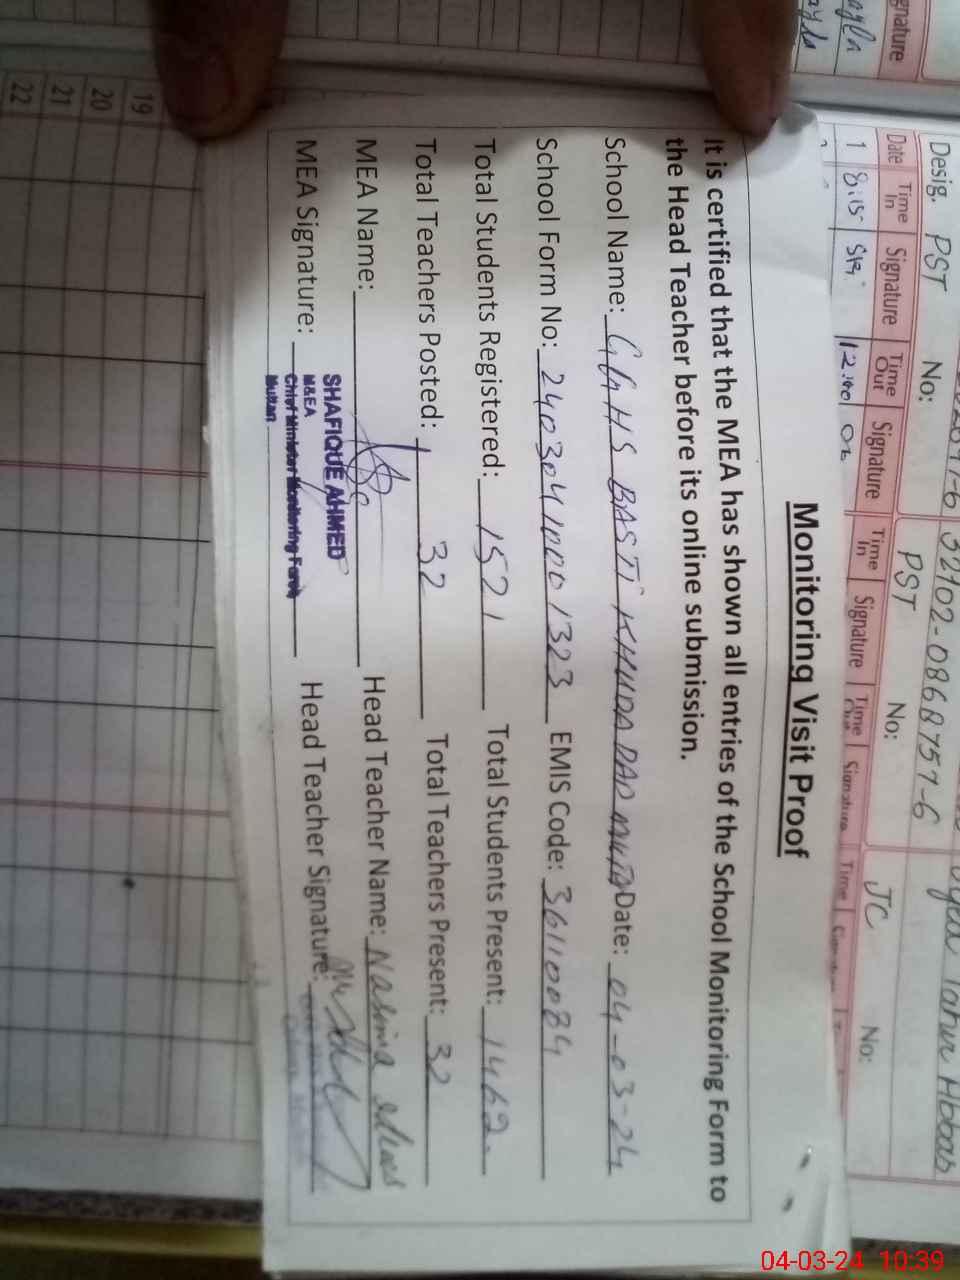 Monitoring Visit Proof
It is certified that the MEA has shown all entries of the School Monitoring Form to
the Head Teacher before its online submission.
School Name: GGHS BASTI KHUDA DAD Date: 04-03-24
School Form No: 24030410001323 EMIS Code: 36110084
Total Students Registered: 1521 Total Students Present: 1462
Total Teachers Posted: 32 Total Teachers Present: 32
MEA Name: Head Teacher Name: Nasima
SHAFIQUE AHMED
MEA Signature: Head Teacher Signature:
M&EA
Chief Minister Monitoring Force
Multan
gnature
Desig. PST No: PST No: JC No:
32102-0868757-6
Abbas
Date Time In Signature Time Out Signature Time In Signature Time Out Signature Time
1 8:15 12:00
19
20
21
22
04-03-24 10:39